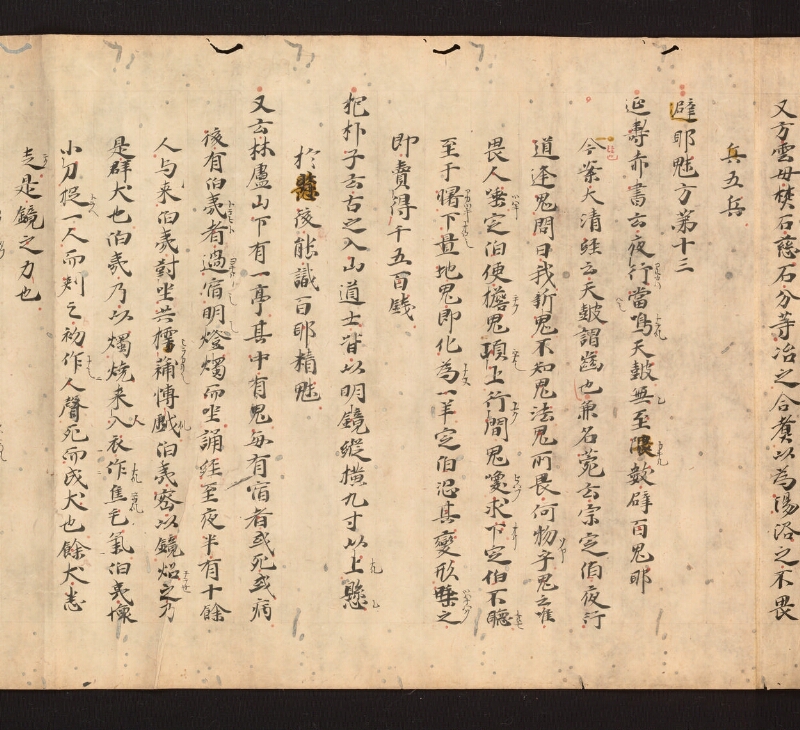 又方雲母樊石慈石分等冶之合煑以為湯浴之不畏
兵五兵
避耶魅方第十三
延壽赤書云夜行當鳴天皷無至限數辟百鬼耶
今案大清經云天皷謂齒也兼名菀云宗定伯夜行
道逢鬼問曰我新鬼不知鬼法鬼所畏何物乎鬼云唯
畏人唾定伯便擔鬼項上行間鬼喚求下定伯不聴
至于曙下置地鬼即化為一羊定伯恐其變形唾之
即賣得千五百錢
抱朴子云古之入山道士皆以明鏡縱横九寸以上懸
於後能識百耶精魅
又云林盧山下有一亭其中有鬼毎有宿者或死或病
後有伯夷者過宿明燈燭而坐誦經至夜半有十餘
人与来伯夷對坐共樗蒱博戯伯夷密以鏡炤之乃
是群犬也伯夷乃以燭焼来人衣作焦毛氣伯夷懐
小刀捉一人而刺之初作人聲死而成犬也餘犬悉
走是鏡之力也